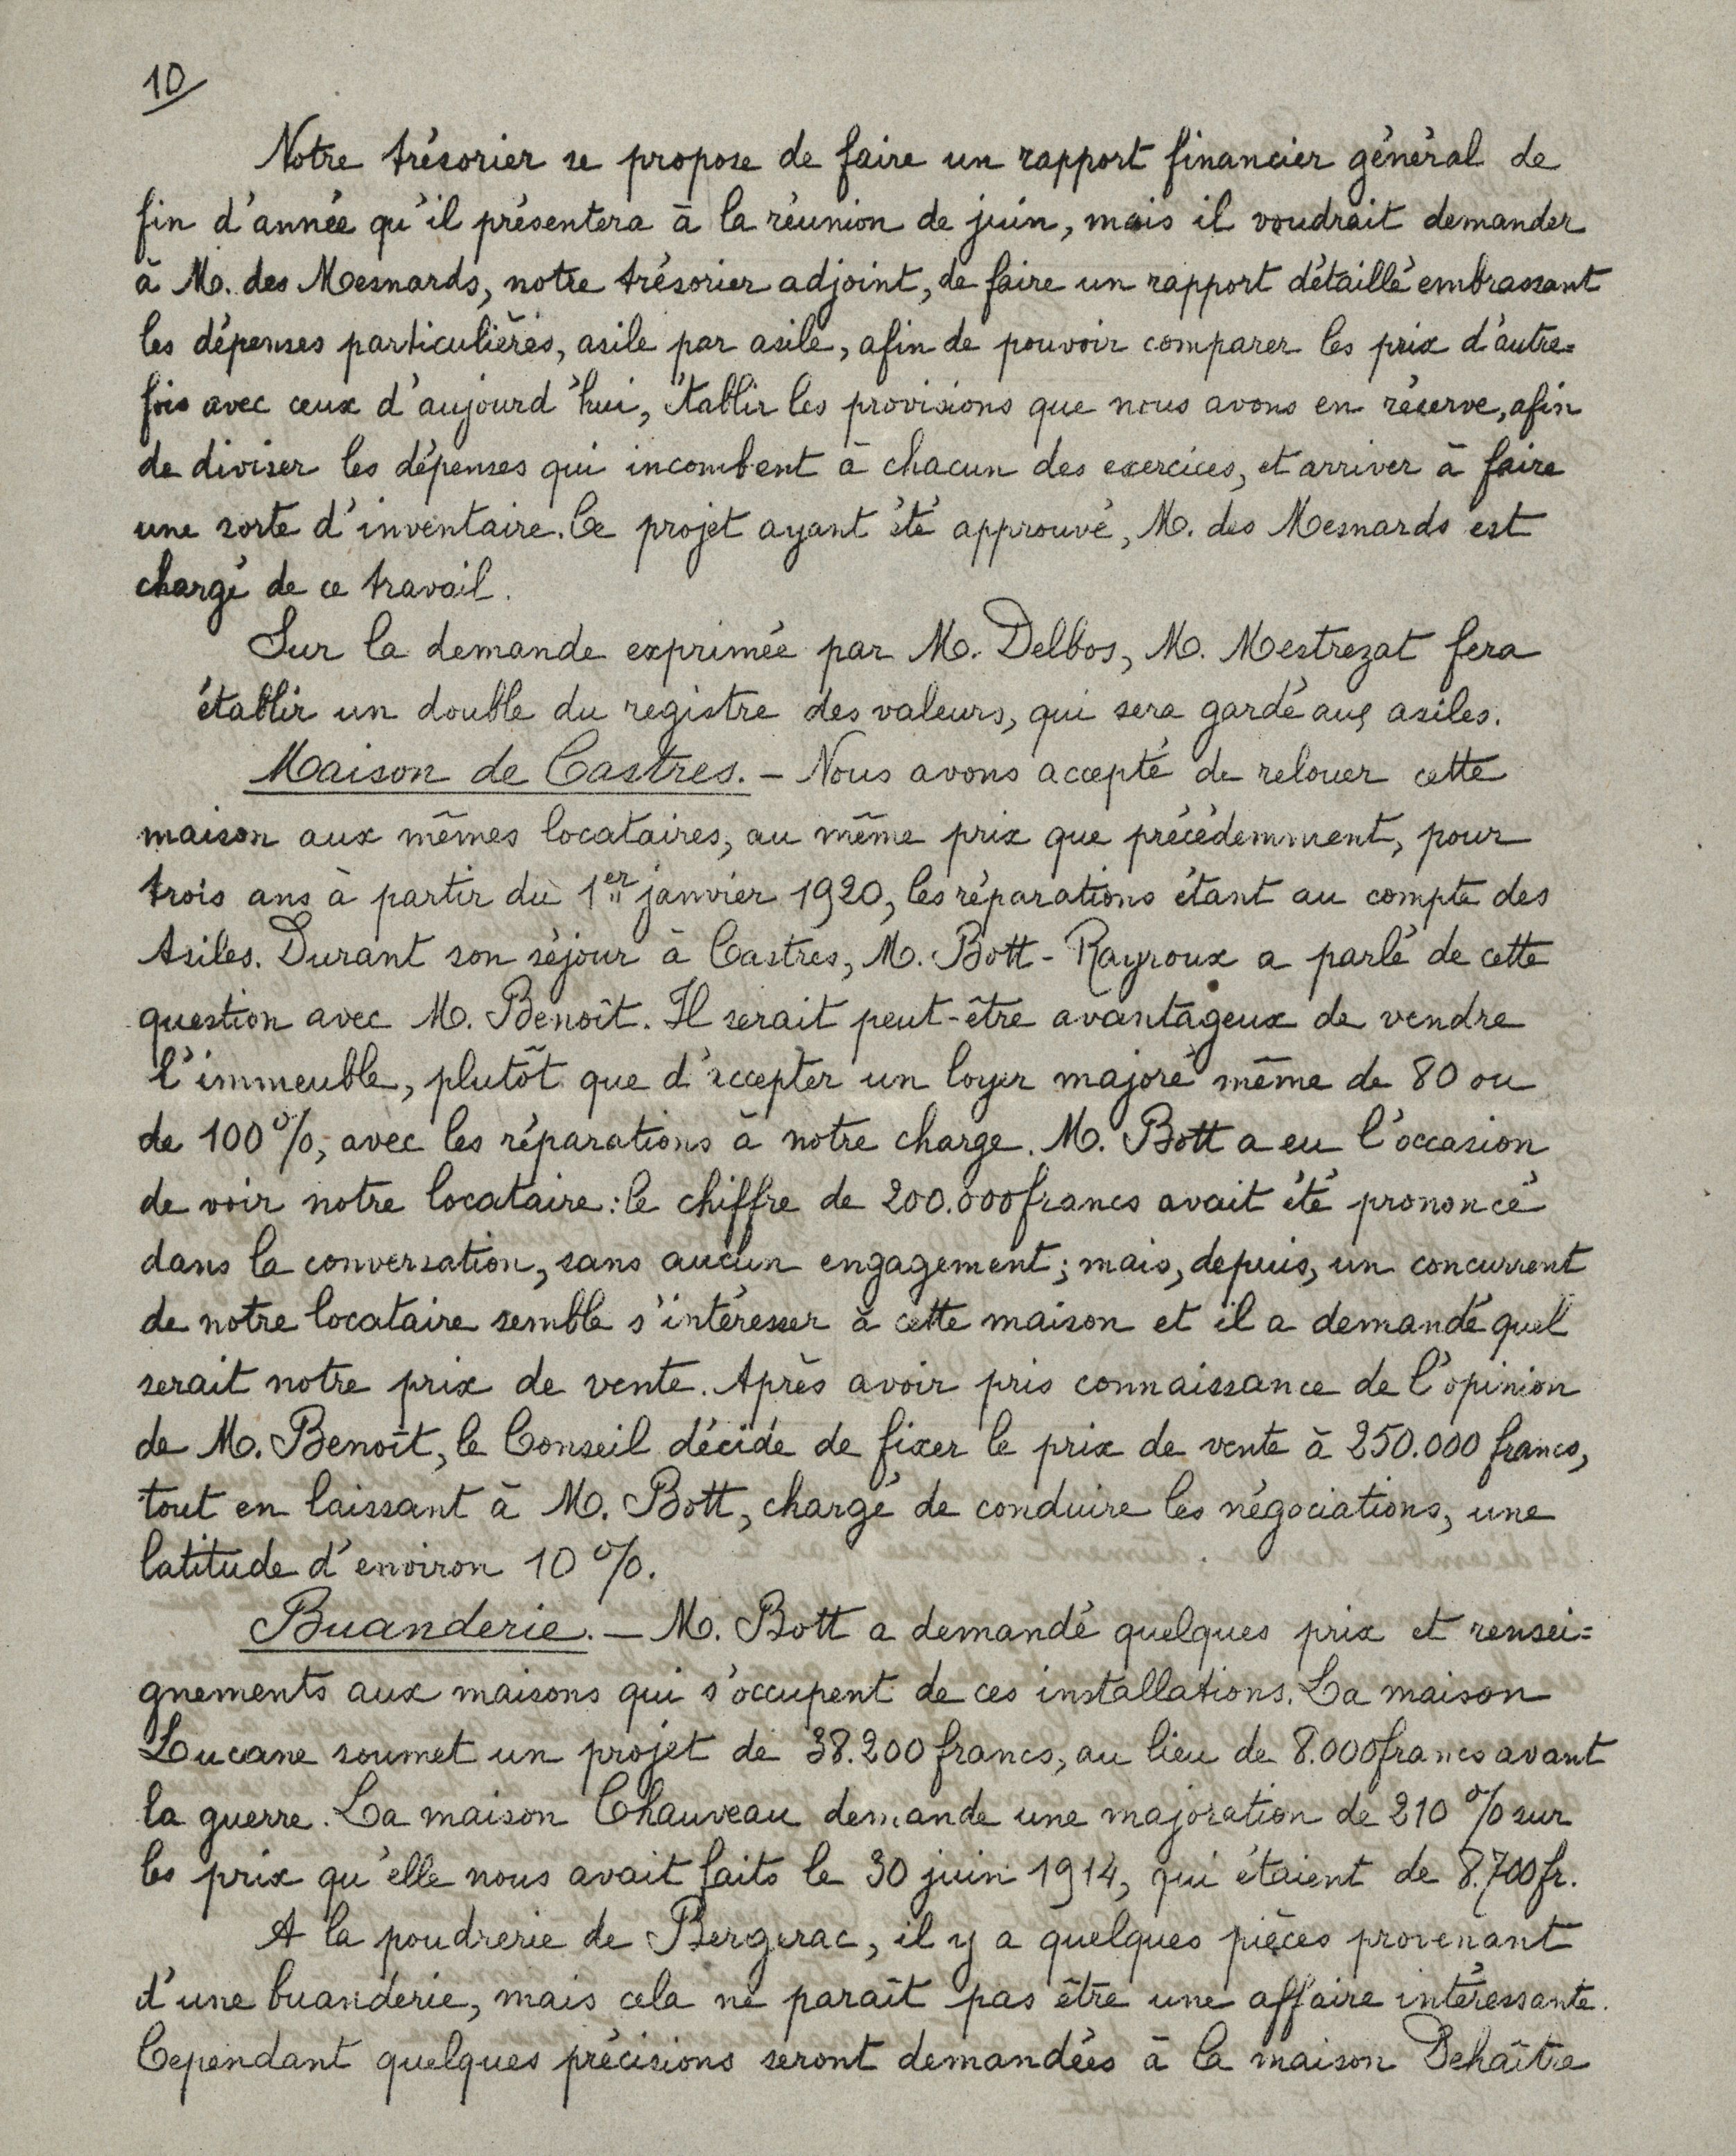 10
Notre trésorier se propose de faire un rapport financier général de
fin d'année qu'il présentera à la réunion de juin, mais il voudrait demander
à M. des Mesnards, notre trésorier adjoint, de faire un rapport détaillé embrassant
les dépenses particulières, asile par asile, afin de pouvoir comparer les prix d'autre=
fois avec ceux d'aujourd'hui, établir les provisions que nous avons en réserve, afin
de diviser les dépenses qui incombent à chacun des exercices, et arriver à faire
une sorte d'inventaire. Ce projet ayant été approuvé, M. des Mesnards est
chargé de ce travail.
Sur la demande exprimée par M. Delbos, M. Mestrezat fera
établir un double du registre des valeurs, qui sera gardé aux asiles.
Maison de Castres. – Nous avons accepté de relouer cette
maison aux mêmes locataires, au même prix que précédemment, pour
trois ans à partir du 1er janvier 1920, les réparations étant au compte des
Asiles. Durant son séjour à Castres, M. Bott-Rayroux a parlé de cette
question avec M. Benoît. Il serait peut-être avantageux de vendre
l'immeuble, plutôt que d'accepter un loyer majoré même de 80 ou
de 100 %, avec les réparations à notre charge. M. Bott a eu l'occasion
de voir notre locataire : le chiffre de 200.000 francs avait été prononcé
dans la conversation, sans aucun engagement ; mais, depuis, un concurrent
de notre locataire semble s'intéresser à cette maison et il a demandé quel
serait notre prix de vente. Après avoir pris connaissance de l'opinion
de M. Benoît, le Conseil décide de fixer le prix de vente à 250.000 francs,
tout en laissant à M. Bott, chargé de conduire les négociations, une
latitude d'environ 10 %.
Buanderie. – M. Bott a demandé quelques prix et rensei=
gnements aux maisons qui s'occupent de ces installations. La maison
Lucane soumet un projet de 38.200 francs, au lieu de 8.000 francs avant
la guerre. La maison Chauveau demande une majoration de 210 % sur
les prix qu'elle nous avait faits le 30 juin 1914, qui étaient de 8.700 fr.
A la poudrerie de Bergerac, il y a quelques pièces provenant
d'une buanderie, mais cela ne paraît pas être une affaire intéressante.
Cependant quelques précisions seront demandées à la maison Dehaître